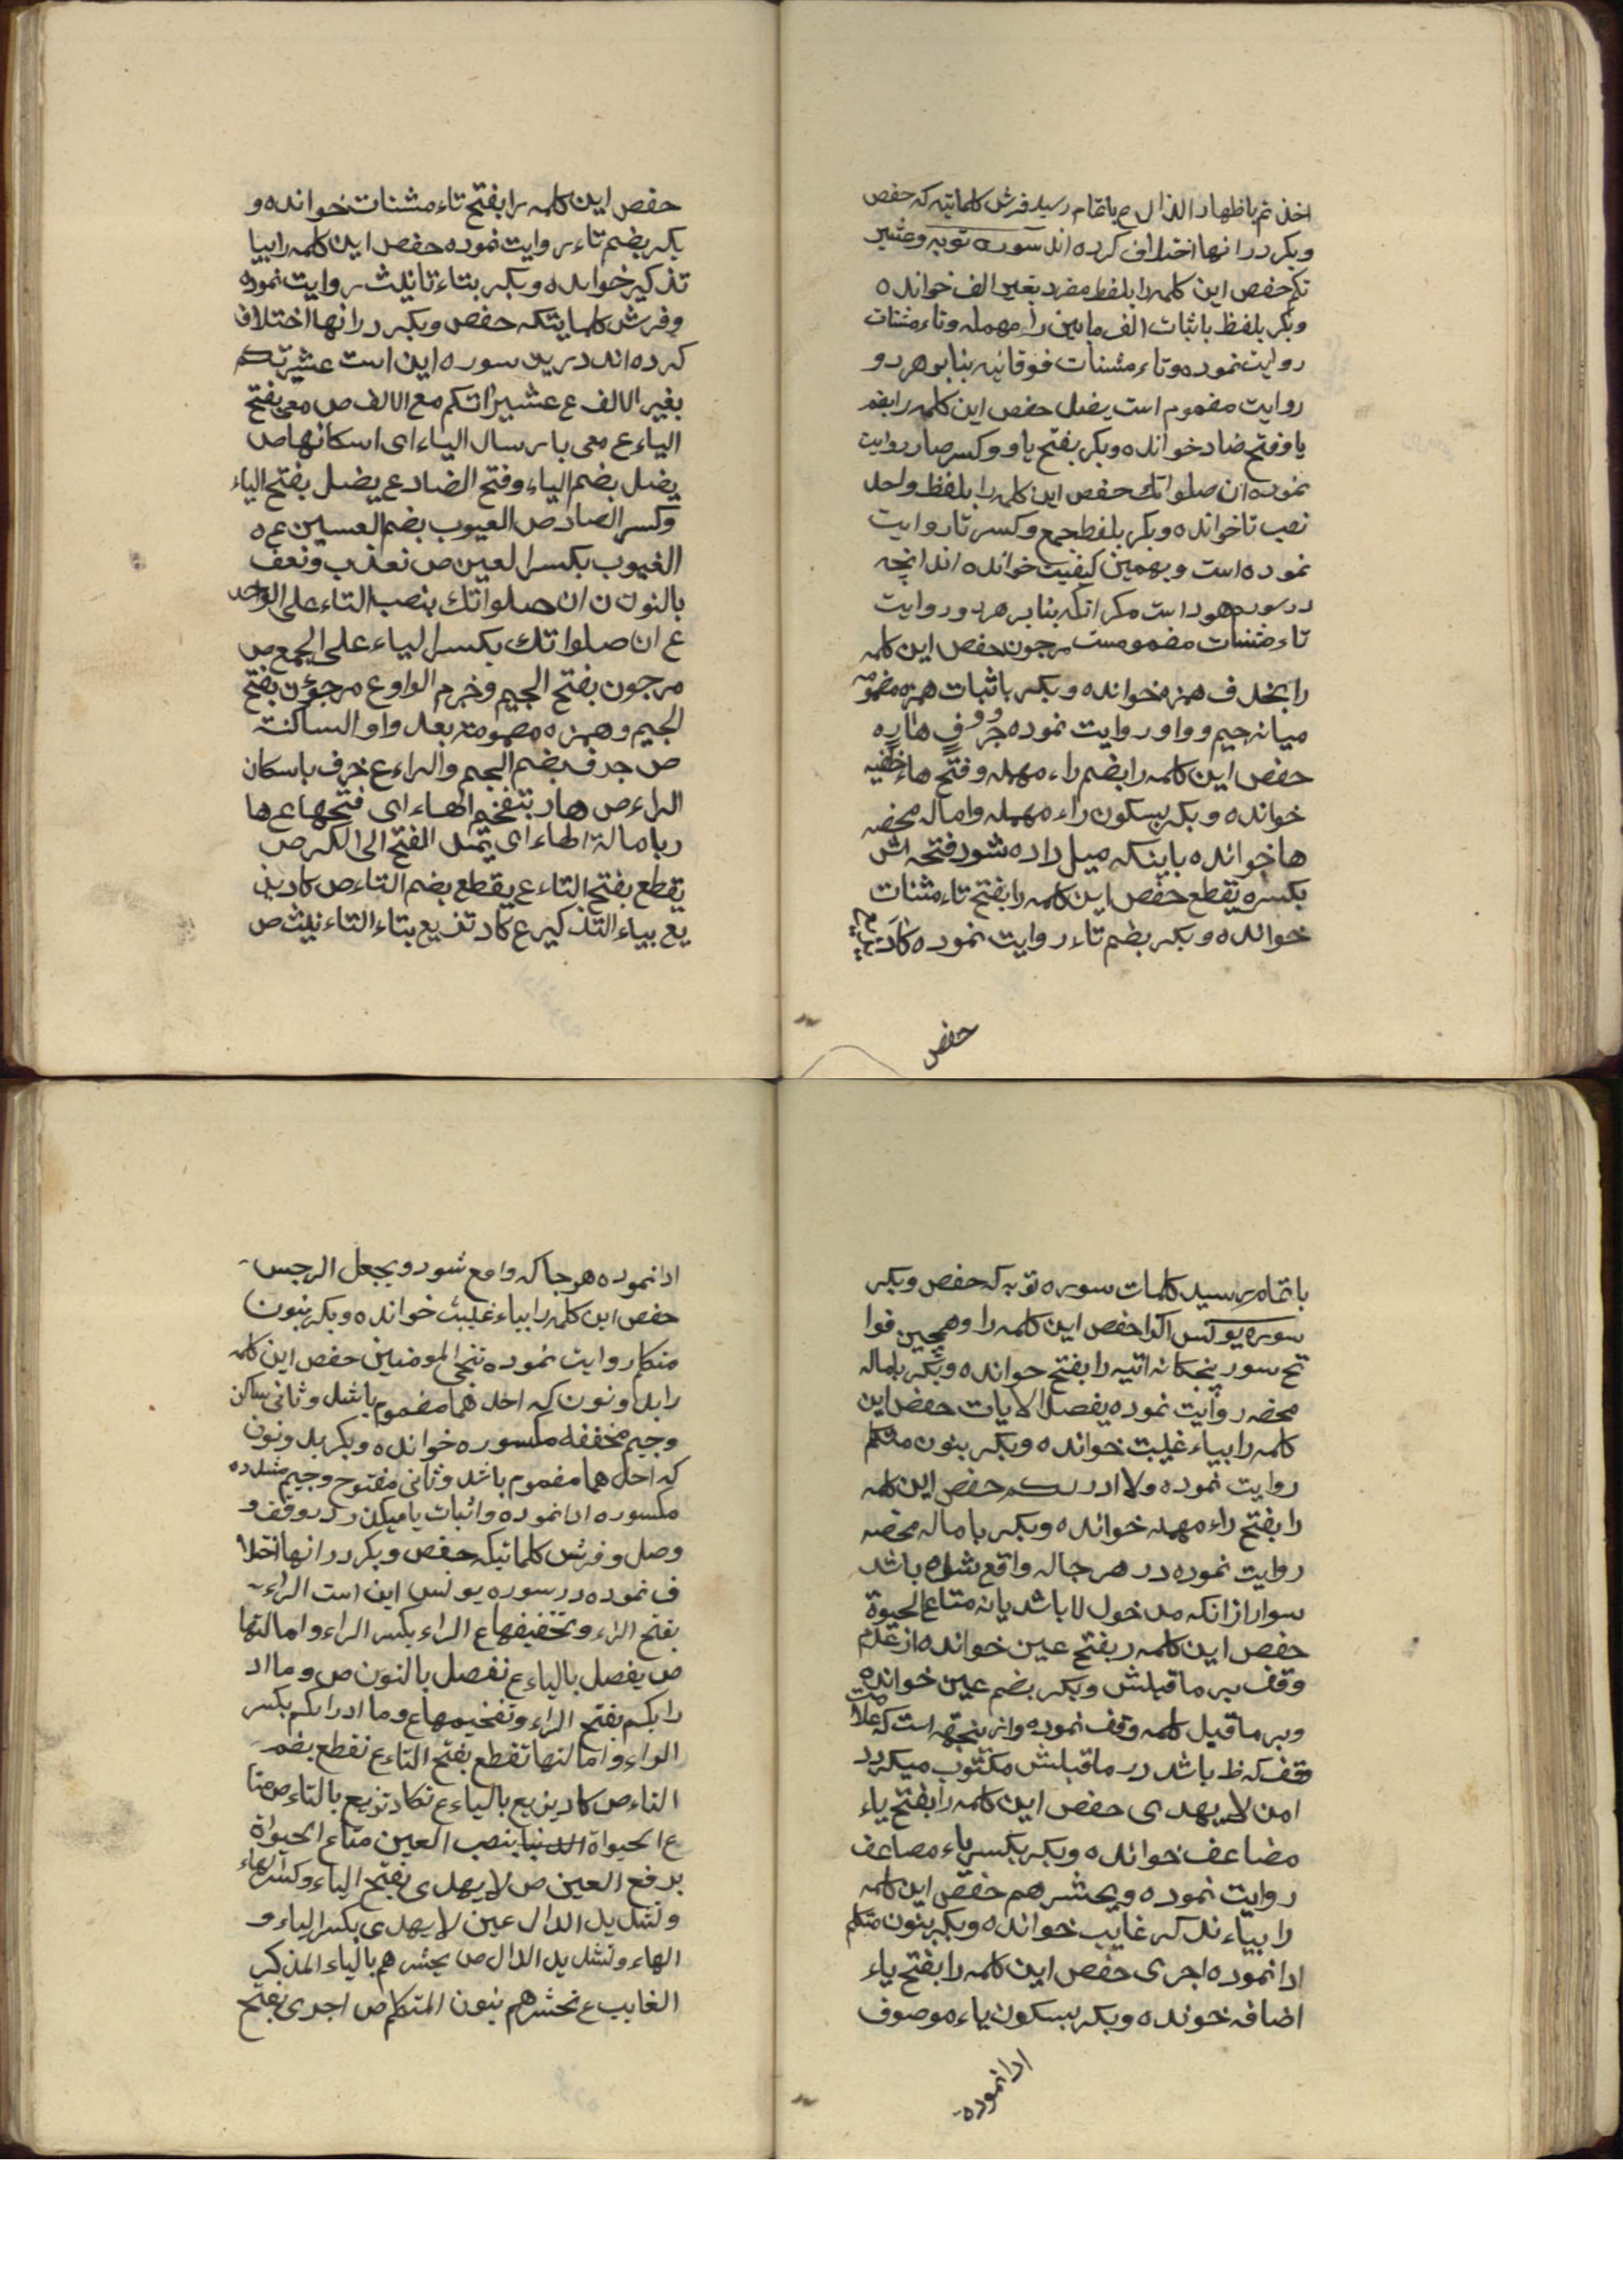 اخذتم باظهار الذال ع باتمام رسید فرش کلماتیه که حفص
وبکر در انها اختلاف کرده اند سوره توبه وعشیر
تکم حفص این کلمه را بلفظ مفرد بغیر الف خوانده
وبکر بلفظ باثبات الف مابین راء مهمله وتاء مثنات
روایت نموده وتاء مثنات فوقانیه بنابر هر دو
روایت مضموم است یضل حفص این کلمه را بضم
یا وفتح ضاد خوانده وبکر بفتح یا وو کسر ضاد روایت
نموده ان صلواتك حفص این کلمه را بلفظ واحد
نصب تا خوانده وبکر بلفظ جمع وکسر تا روایت
نموده است وبهمین کیفیت خوانده اند انچه
در سوره هود است مکر انکه بنابر هر دو روایت
تاء مثنات مضمومست مرجون حفص این کلمه
را بخذف همزه خوانده وبکر باثبات همزه مضمومه
میانه جیم وواو روایت نموده جرف هاره
حفص این کلمه را بضم راء مهمله وفتح هاء خفیه
خوانده وبکر بسکون راء مهمله واماله محضه
ها خوانده باینکه میل داده شود فتحه اش
بکسره یقطع حفص این کلمه را بفتح تاء مثنات
خوانده وبکر بضم تاء روایت نموده کاد یزیع
حفص
حفص این کلمه را بفتح تاء مثنات خوانده و
بکر بضم تاء روایت نموده حفص این کلمه را بیا
تذکیر خوانده وبکر بتاء تانیث روایت نموده
وفرش کلماتیکه حفص وبکر در انها اختلاف
کرده اند درین سوره این است عشیرتکم
بغیر الالف ع عشیراتکم مع الالف ص معی بفتح
الیاء ع معی بارسال الیاء ای اسکانها ص
یضل بضم الیاء وفتح الضاد ع یضل بفتح الیاء
وکسر الضاد ص الغیوب بضم العسین ع ه
الغیوب بکسر العین ص نعذب ونعف
بالنون ن ان صلواتك بنصب التاء علی الواحد
ع ان صلواتك بکسر الیاء علی الجمع ص
مرجون بفتح الجیم وخرم الواو ع مرجؤن بفتح
الجیم وهمزه مضمومة بعد واو الساکنة
ص جرف بضم الجیم والراء ع خرف باسکان
الراء ص هار بتفخیم الهاء ای فتحها ع ها
ر بامالة الهاء ای یمیل الفتح الی الکسر ص
یقطع بفتح التاء ع یقطع بضم التاء ص کاد یز
یع بیاء التذکیر ع کاد تزیع بتاء التانیث ص
باتمام رسید کلمات سوره توبه که حفص وبکر
سوره یونس الرا حفص این کلمه را وهمچنین فوا
تح سور پنجکانه اتیه را بفتح خوانده وبکر باماله
محضه روایت نموده یفصل الایات حفص این
کلمه را بیاء غیبت خوانده وبکر بنون متکلم
روایت نموده ولا ادریکم حفص این کلمه
را بفتح راء مهمله خوانده وبکر باماله محضه
روایت نموده در هر جاله واقع شده باشد
سوار ازانکه مدخول لا باشد یا نه متاع الحیوة
حفص این کلمه ر بفتح عین خوانده از عدم
وقف بر ماقبلش وبکر بضم عین خوانده
وبر ماقبل کلمه وقف نموده واز ینجهه است که علامت
وقف که ط باشد در ماقبلش مکتوب میکردد
امن لا یهدی حفص این کلمه را بفتح یاء
مضاعف خوانده وبکر بکسر یاء مضاعف
روایت نموده ویحشرهم حفص این کلمه
را بیاء تذکر غایب خوانده وبکر بنون متکلم
ادا نموده اجری حفص این کلمه را بفتح یاء
اضافه خونده وبکر بسکون یاء موصوف
ادا نموده
ادا نموده هر جا که واقع شود ویجعل الرجس
حفص این کلمه را بیاء غلیبت خوانده وبکر بنون
متکلم روایت نموده ننجی المومنین حفص این کلمه
را بدو نون که احدهما مضموم باشد وثانی ساکن
وجیم مخففه مکسوره خوانده وبکر بدو نون
که احدهما مضموم باشد وثانی مفتوح وجیم مشدده
مکسوره ادا نموده واثبات یا میکند در وقف و
وصل وفرش کلماتیکه حفص وبکر در انها اختلا
ف نموده در سوره یونس این است الراء
بفتح الراء وتخفیفها ع الراء بکسر الراء وامالتها
ص یفصل بالیاء ع نفصل بالنون ص وما اد
رایکم بفتح الراء وتفخیمها ع وما ادرایکم بکسر
الراء وامالتها تقطع بفتح التاء ع نقطع بضم
التاء ص کاد یزیع بالیاء ع تکاد تزیع بالتاء ص متا
ع الحیواة الدنیا بنصب العین متاع الحیواة
برفع العین ص لا یهدی بفتح الیاء وکسر الهاء
وتشدید الدال عین لا یهدی بکسر الیاء و
الهاء وتشدید الدال ص یحشرهم بالیاء المذکر
الغایب ع نحشرهم بنون المتکلم ص اجری بفتح